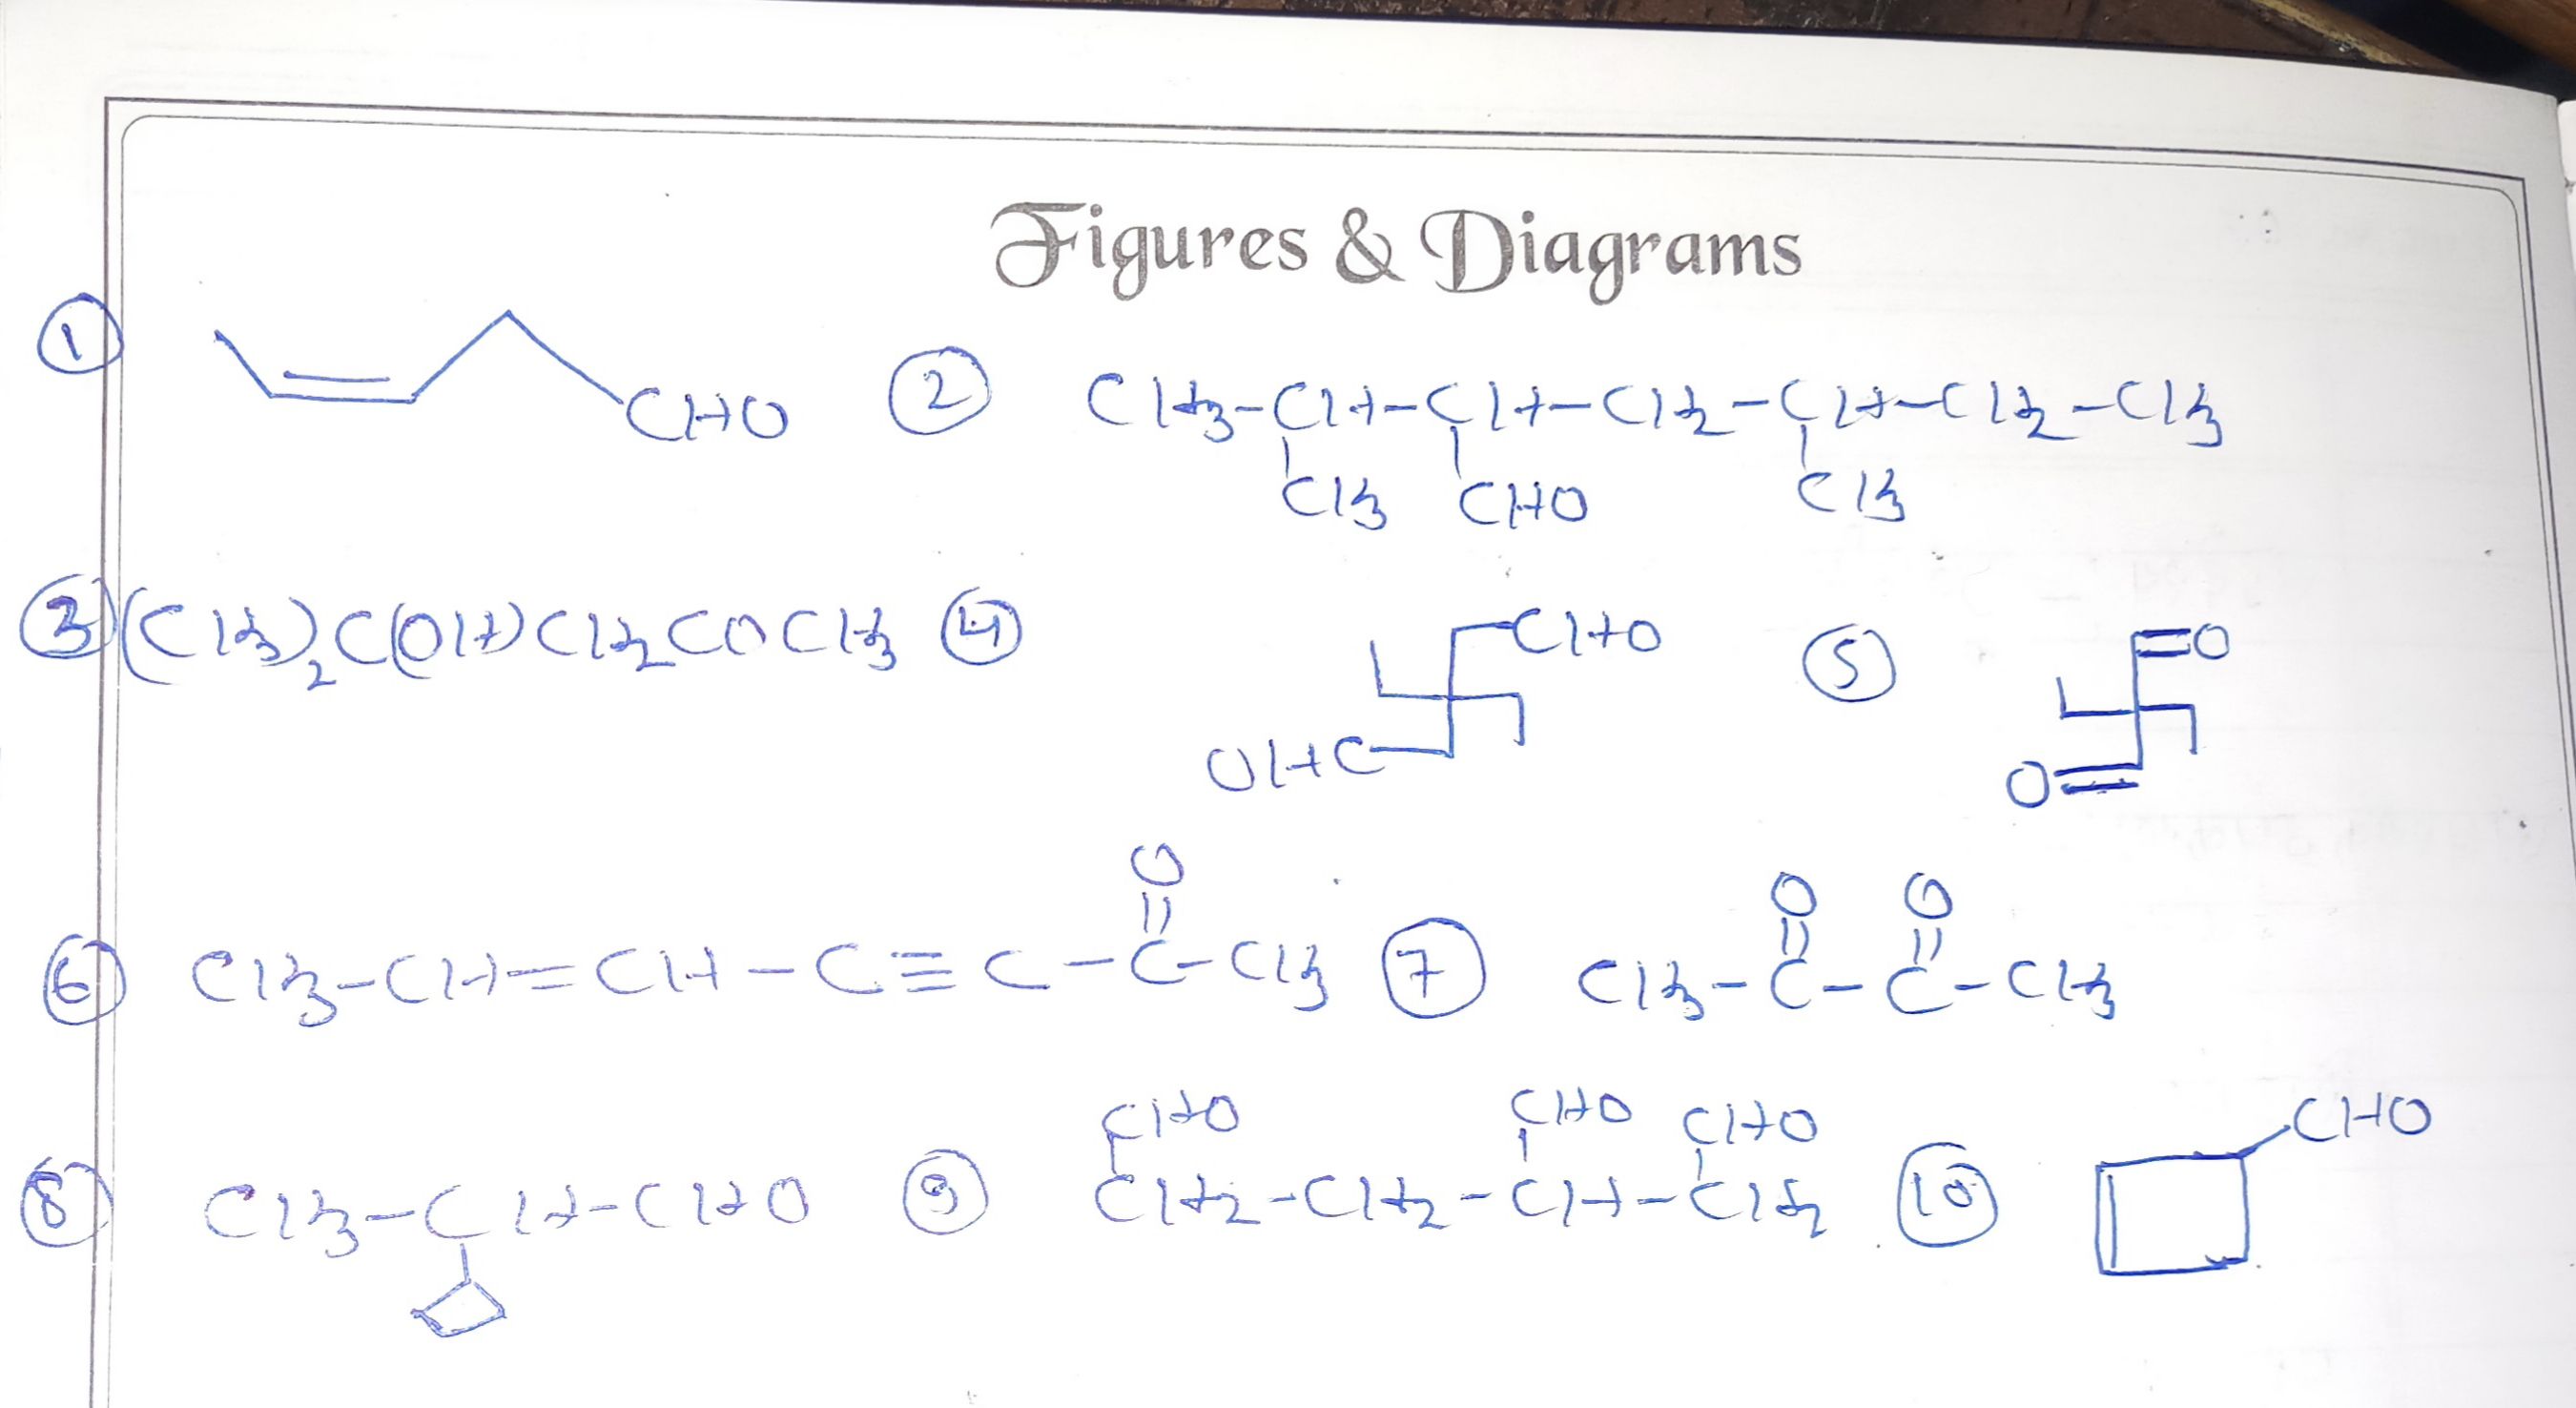 Figures & Diagrams
① CHO ② CH3-CH-CH-CH2-CH-CH2-CH3
CH3 CHO CH3
③ (CH3)2C(OH)CH2COCH3 ④ CHO ⑤ =O
OHC O=
O O O
|| || ||
⑥ CH3-CH=CH-C≡C-C-CH3 ⑦ CH3-C-C-CH3
CHO CHO CHO CHO
⑧ CH3-CH-CHO ⑨ CH2-CH2-CH-CH2 ⑩